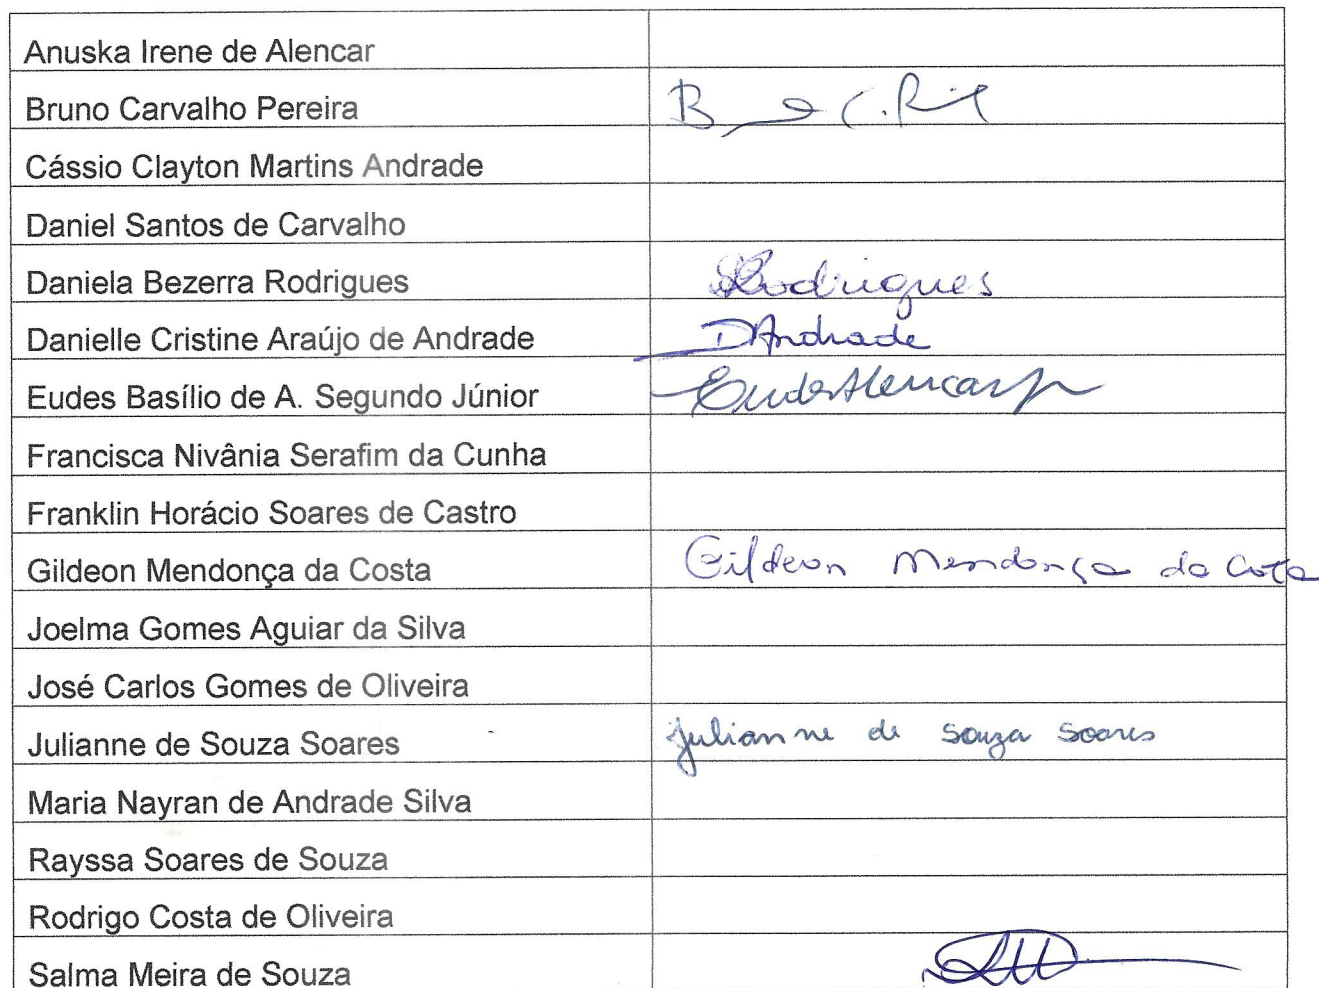 Anuska Irene de Alencar
Bruno Carvalho Pereira
Cássio Clayton Martins Andrade
Daniel Santos de Carvalho
Daniela Bezerra Rodrigues Rodrigues
Danielle Cristine Araújo de Andrade DAndrade
Eudes Basílio de A. Segundo Júnior EudesAlencarJr
Francisca Nivânia Serafim da Cunha
Franklin Horácio Soares de Castro
Gildeon Mendonça da Costa Gildeon Mendonça da Costa
Joelma Gomes Aguiar da Silva
José Carlos Gomes de Oliveira
Julianne de Souza Soares Julianne de Souza Soares
Maria Nayran de Andrade Silva
Rayssa Soares de Souza
Rodrigo Costa de Oliveira
Salma Meira de Souza